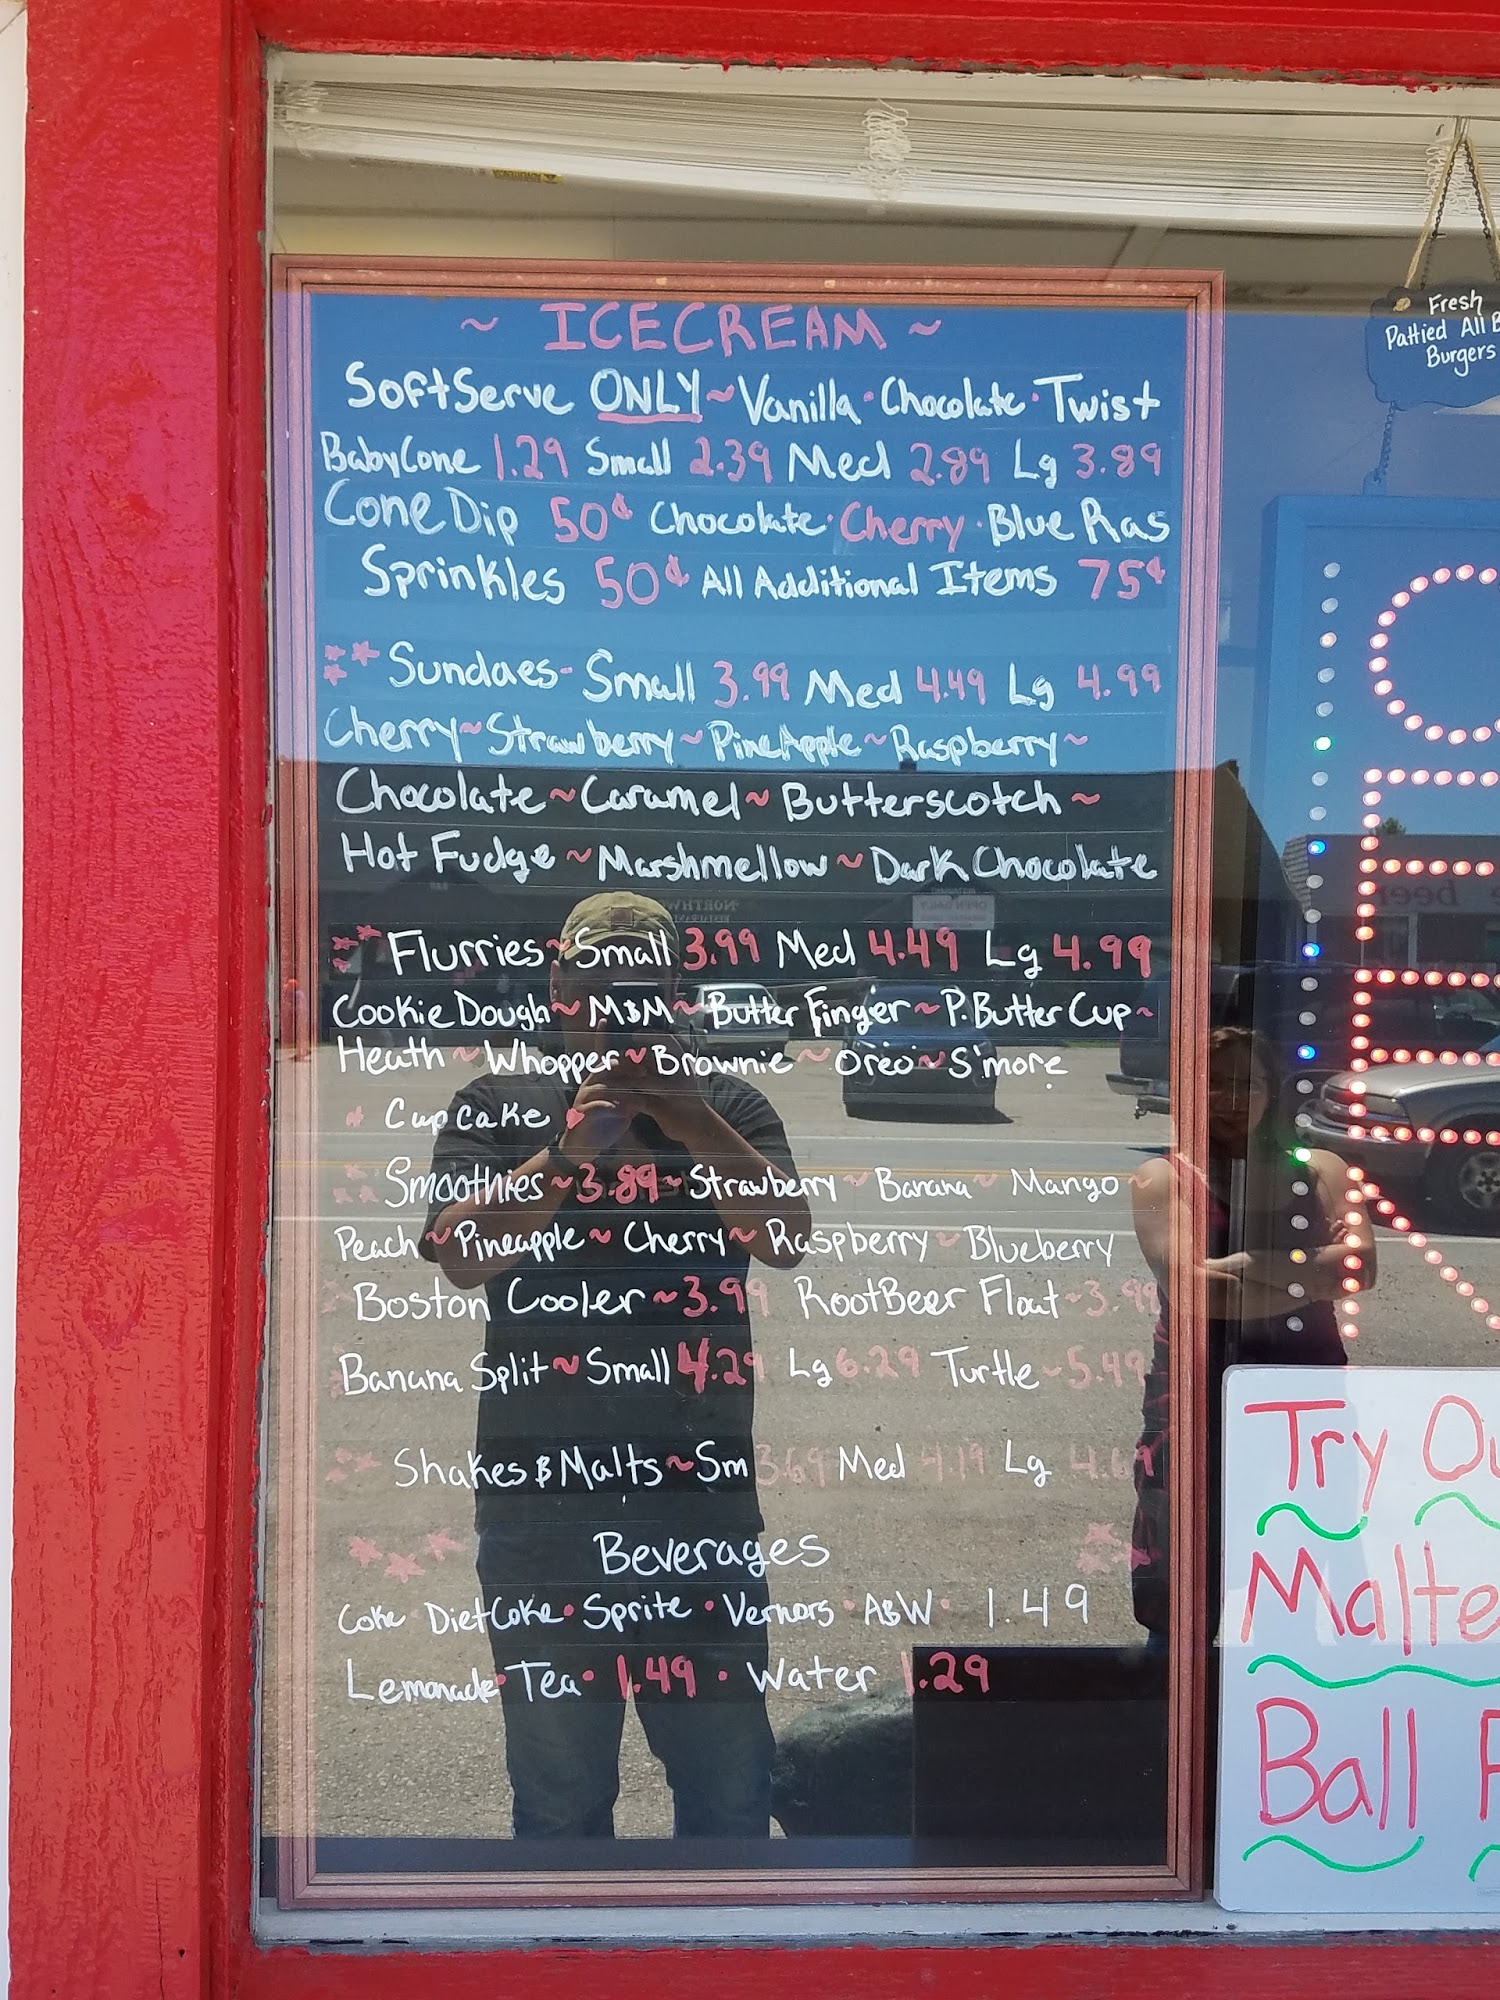 ~ ICECREAM ~
SoftServe ONLY ~ Vanilla · Chocolate · Twist
BabyCone 1.29 Small 2.39 Med 2.89 Lg 3.89
Cone Dip 50¢ Chocolate · Cherry · Blue Ras
Sprinkles 50¢ All Additional Items 75¢
Sundaes - Small 3.99 Med 4.49 Lg 4.99
Cherry ~ Strawberry ~ PineApple ~ Raspberry ~
Chocolate ~ Caramel ~ Butterscotch ~
Hot Fudge ~ Marshmellow ~ Dark Chocolate
Flurries ~ Small 3.99 Med 4.49 Lg 4.99
Cookie Dough ~ M&M ~ Butter Finger ~ P. Butter Cup ~
Heath ~ Whopper ~ Brownie ~ Oreo ~ S'more
Cupcake
Smoothies ~ 3.89 ~ Strawberry ~ Banana ~ Mango ~
Peach ~ Pineapple ~ Cherry ~ Raspberry ~ Blueberry
Boston Cooler ~ 3.99 RootBeer Float ~ 3.99
Banana Split ~ Small 4.29 Lg 6.29 Turtle ~ 5.49
Shakes & Malts ~ Sm 3.69 Med 4.19 Lg 4.69
Beverages
Coke Diet Coke · Sprite · Vernors · A&W · 1.49
Lemonade · Tea · 1.49 · Water 1.29
Fresh
Pattied All B
Burgers
Try Ou
Malte
Ball